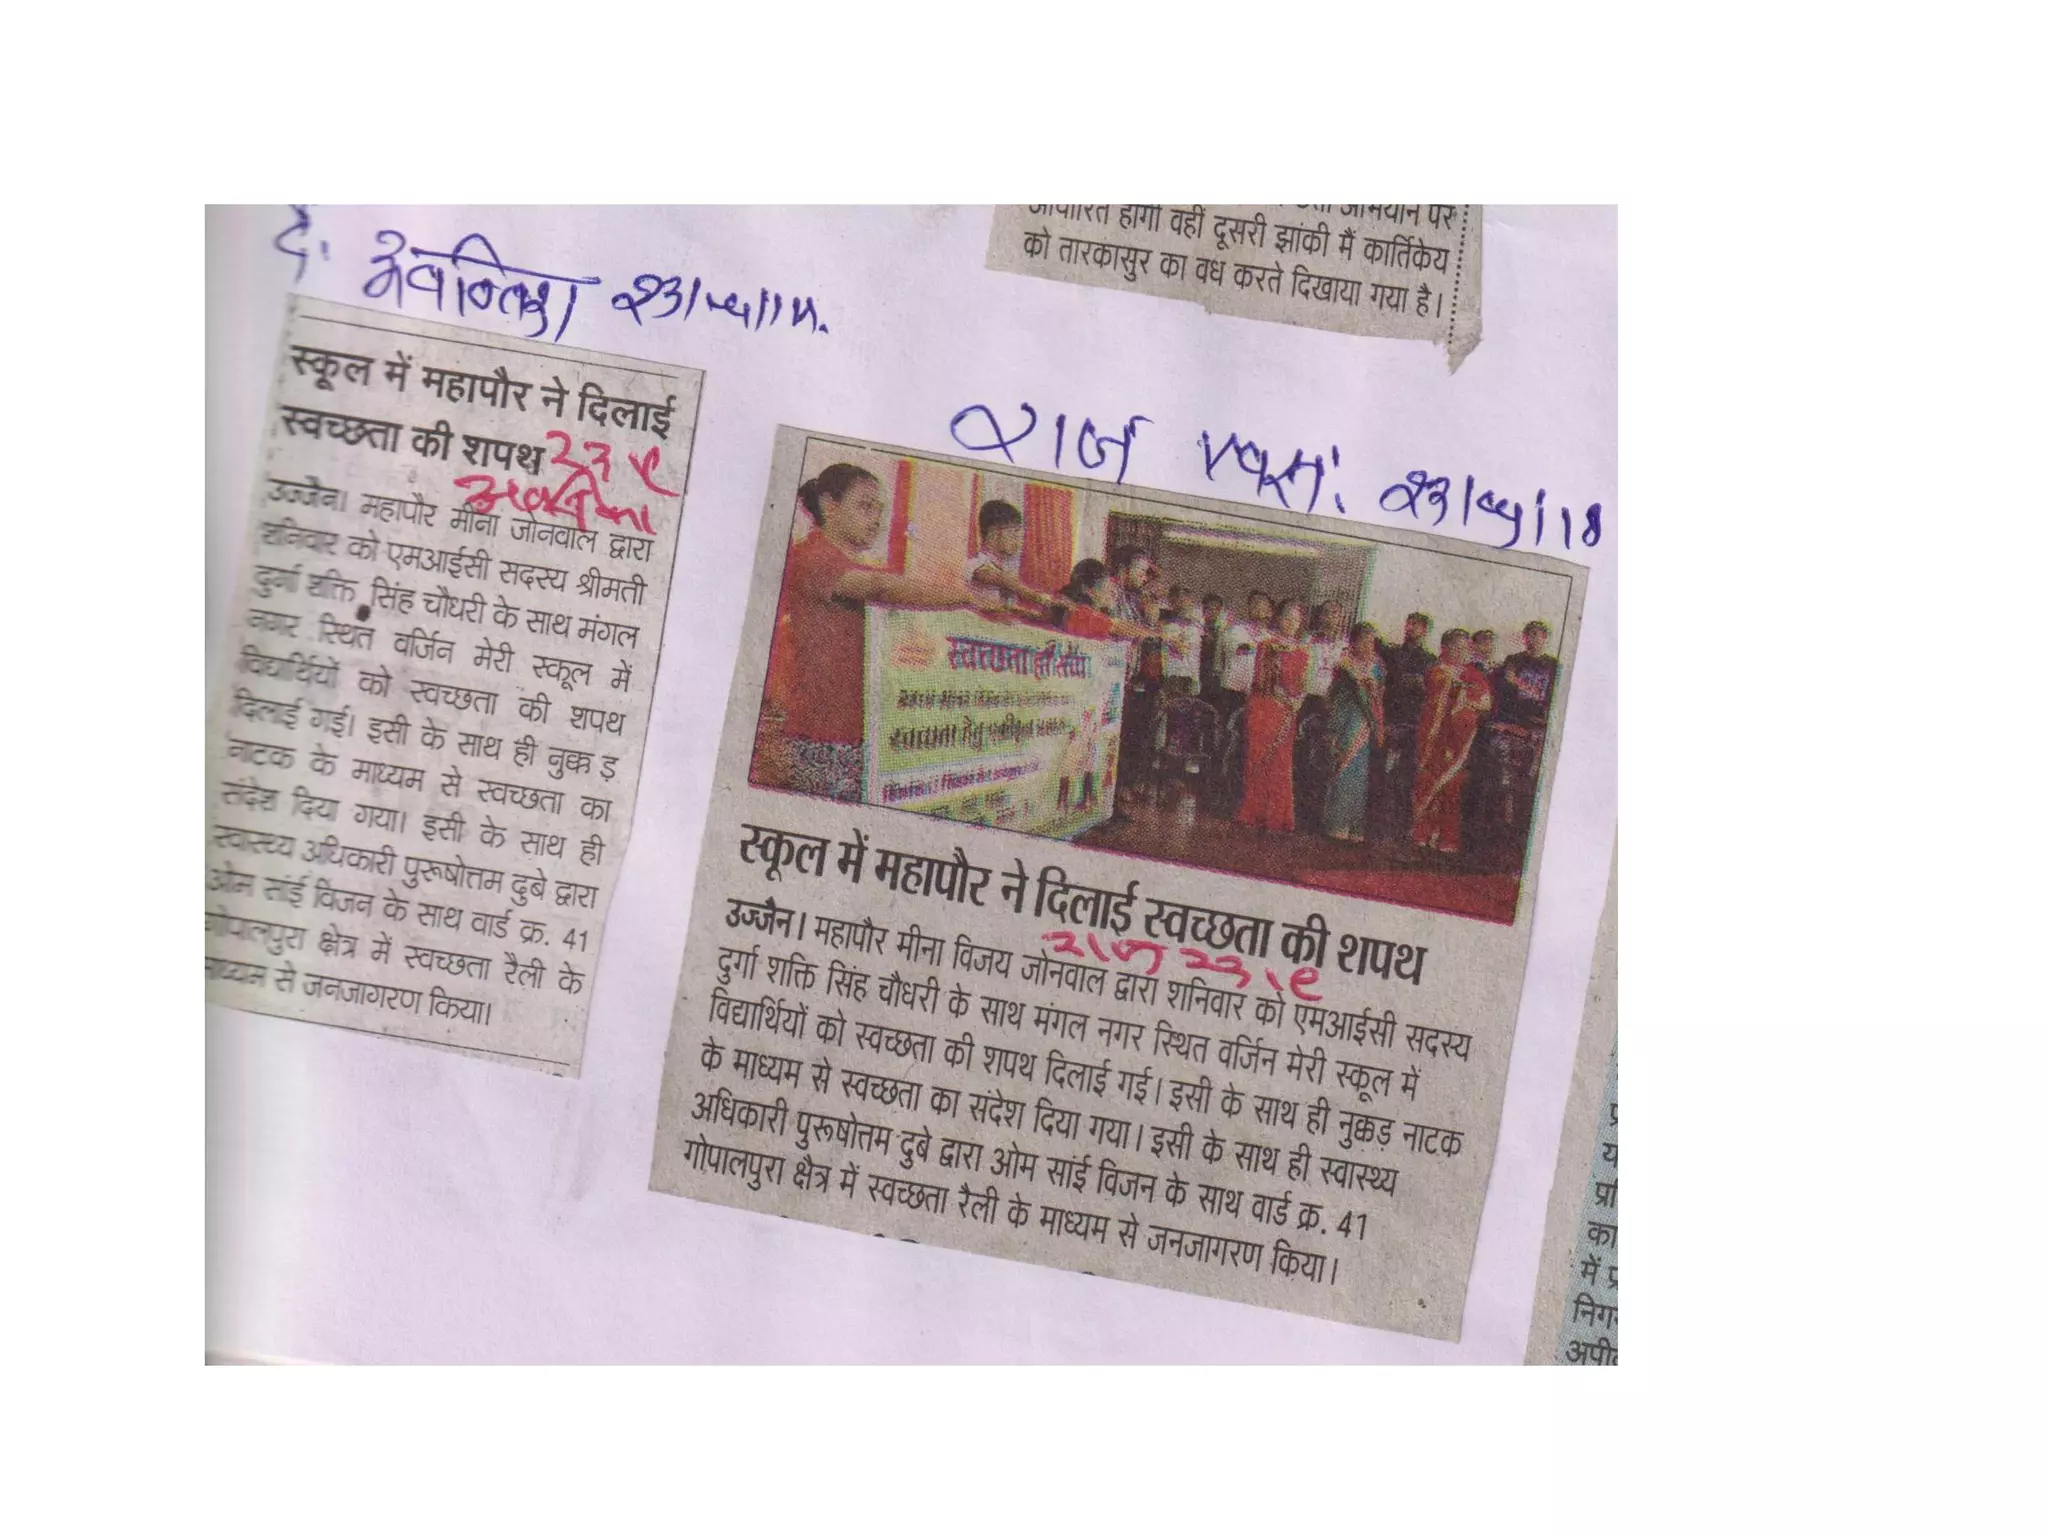 द. अवन्तिका 23/9/18.
स्कूल में महापौर ने दिलाई
स्वच्छता की शपथ 23 9
अवन्तिका
उज्जैन। महापौर मीना जोनवाल द्वारा
शनिवार को एमआईसी सदस्य श्रीमती
दुर्गा शक्ति सिंह चौधरी के साथ मंगल
नगर स्थित वर्जिन मेरी स्कूल में
विद्यार्थियों को स्वच्छता की शपथ
दिलाई गई। इसी के साथ ही नुक्कड़
नाटक के माध्यम से स्वच्छता का
संदेश दिया गया। इसी के साथ ही
स्वास्थ्य अधिकारी पुरूषोत्तम दुबे द्वारा
ओम सांई विजन के साथ वार्ड क्र. 41
गोपालपुरा क्षेत्र में स्वच्छता रैली के
माध्यम से जनजागरण किया।
अभियान पर
आधारित होगी वहीं दूसरी झांकी मैं कार्तिकेय
को तारकासुर का वध करते दिखाया गया है।
राज 23/9/18
स्वच्छता ही सेवा
स्कूल में महापौर ने दिलाई स्वच्छता की शपथ
राज 23 9
उज्जैन। महापौर मीना विजय जोनवाल द्वारा शनिवार को एमआईसी सदस्य
दुर्गा शक्ति सिंह चौधरी के साथ मंगल नगर स्थित वर्जिन मेरी स्कूल में
विद्यार्थियों को स्वच्छता की शपथ दिलाई गई। इसी के साथ ही नुक्कड़ नाटक
के माध्यम से स्वच्छता का संदेश दिया गया। इसी के साथ ही स्वास्थ्य
अधिकारी पुरूषोत्तम दुबे द्वारा ओम सांई विजन के साथ वार्ड क्र. 41
गोपालपुरा क्षैत्र में स्वच्छता रैली के माध्यम से जनजागरण किया।